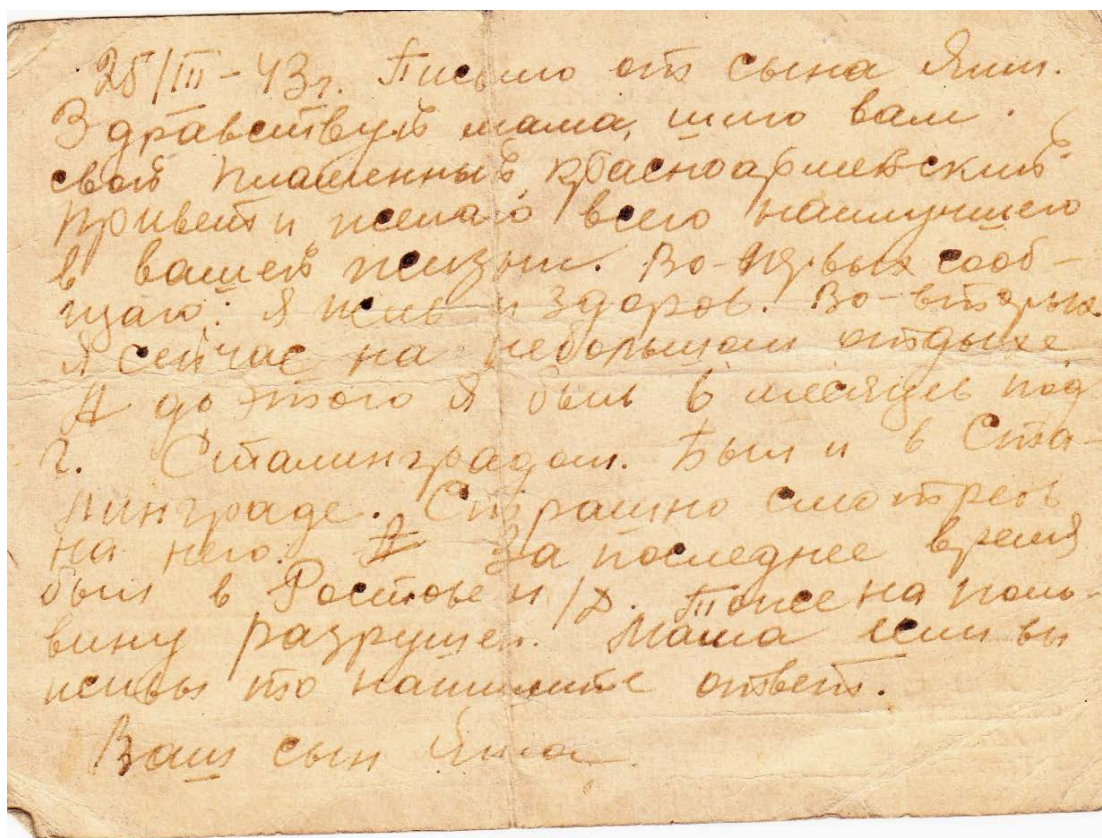 25/III-43г. Письмо от сына Яши.
Здравствуй мама, шлю вам
свой пламенный, красноармейский
привет и желаю всего наилучшего
в вашей жизни. Во-первых сооб-
щаю: я жив и здоров. Во-вторых.
я сейчас на небольшом отдыхе
А до этого я был 6 месяцев под
г. Сталинградом. Был и в Ста-
линграде. Страшно смотреть
на него. За последнее время
был в Ростове н/Д. Тоже на поло-
вину разрушен. Мама если вы
живы то напишите ответ.
Ваш сын Яша.